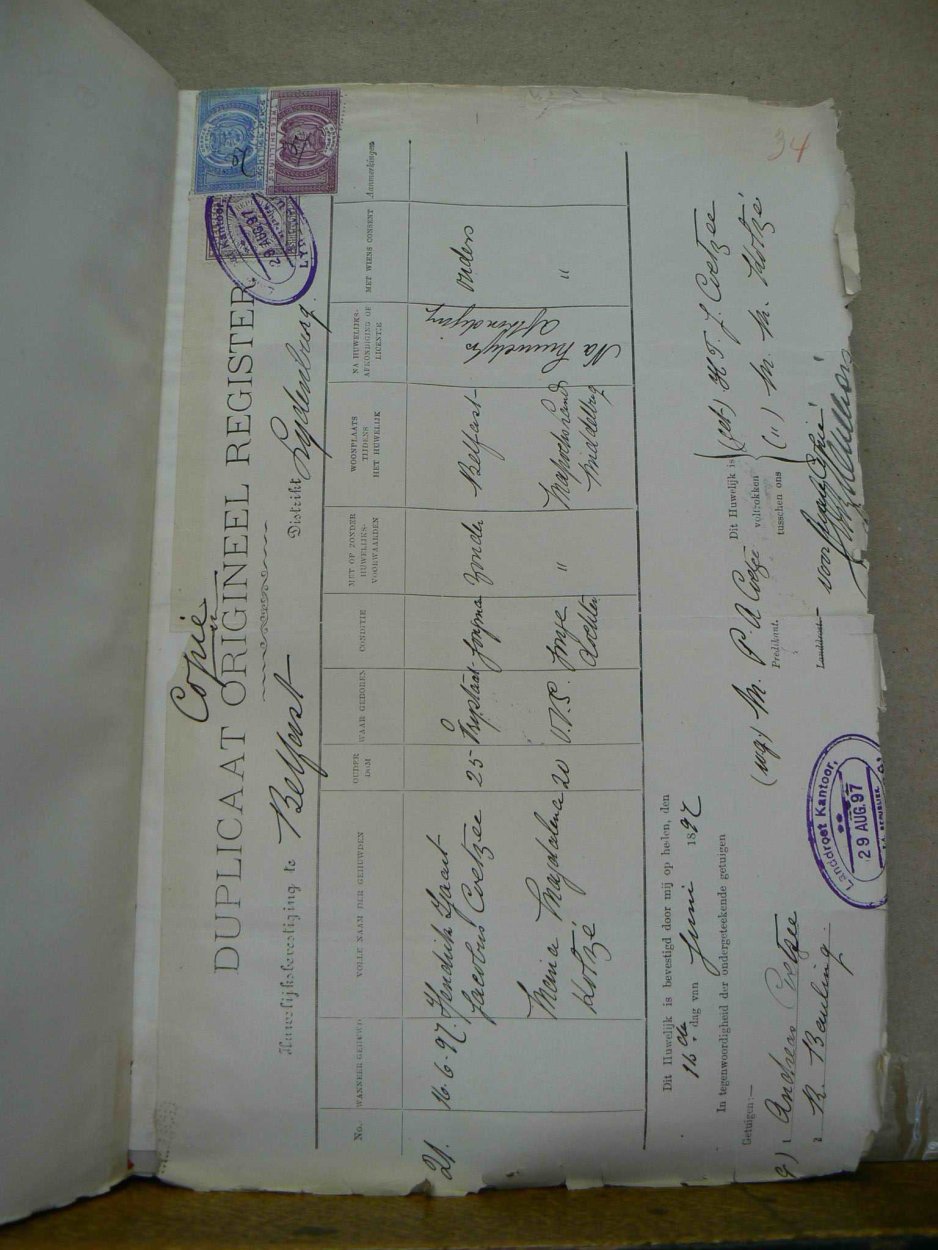 34
Copie
DUPLICAAT ORIGINEEL REGISTER.
Huwelijksbevestiging te Belfast Distrikt Lydenburg.
No. WANNEER GEHUWD VOLLE NAAM DER GEHUWDEN OUDER DOM WAAR GEBOREN CONDITIE MET OF ZONDER HUWELIJKS-VOORWAARDEN WOONPLAATS TIJDENS HET HUWELIJK NA HUWELIJKS-AFKONDIGING OF LICENTIE MET WIENS CONSENT Aanmerkingen
21. 16-6-97. Hendrik
Jacobus Coetzee 25 Vrystaat Jongman Zonder Belfast Na huwelyks afkondiging Ouders
Magdalena 20 O.V.S. Jonge " Mapochsland "
Kotzé Dochter Middelburg
Dit Huwelijk is bevestigd door mij op heden, den
16de dag van Juni 1897
In tegenwoordigheid der ondergeteekende getuigen
Getuigen:—
1 Andries Coetzee
2 R.
(wg) M. P. A. Coetzé
Predikant.
Dit Huwelijk is
voltrokken
tusschen ons
(get) H. T. J. Coetzee
(") M. M. Kotzé
voor Copie
Landdrost
Landdrost Kantoor,
29 AUG. 97
Kantoor
29 AUG. 97